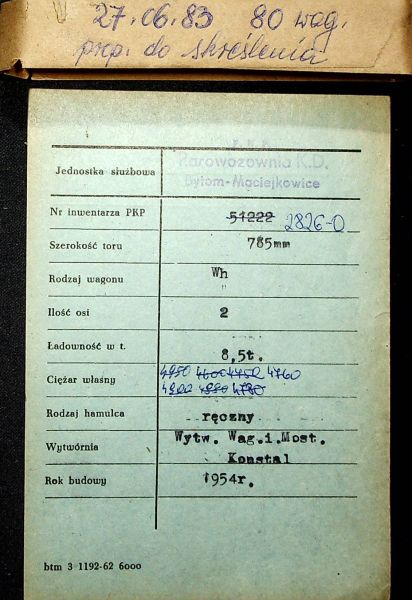 27.06.83 80 wag.
prp. do skreślenia
Parowozownia K.D.
Bytom-Maciejkowice
Jednostka służbowa
Nr inwentarza PKP 51222 2826-0
Szerokość toru 785mm
Rodzaj wagonu Wh
"
Ilość osi 2
Ładowność w t. 8,5t.
Ciężar własny 4950 4600 4450 4760
4780
Rodzaj hamulca ręczny
Wytwórnia Wytw. Wag.i.Most.
Konstal
Rok budowy 1954r.
btm 3 1192-62 6000